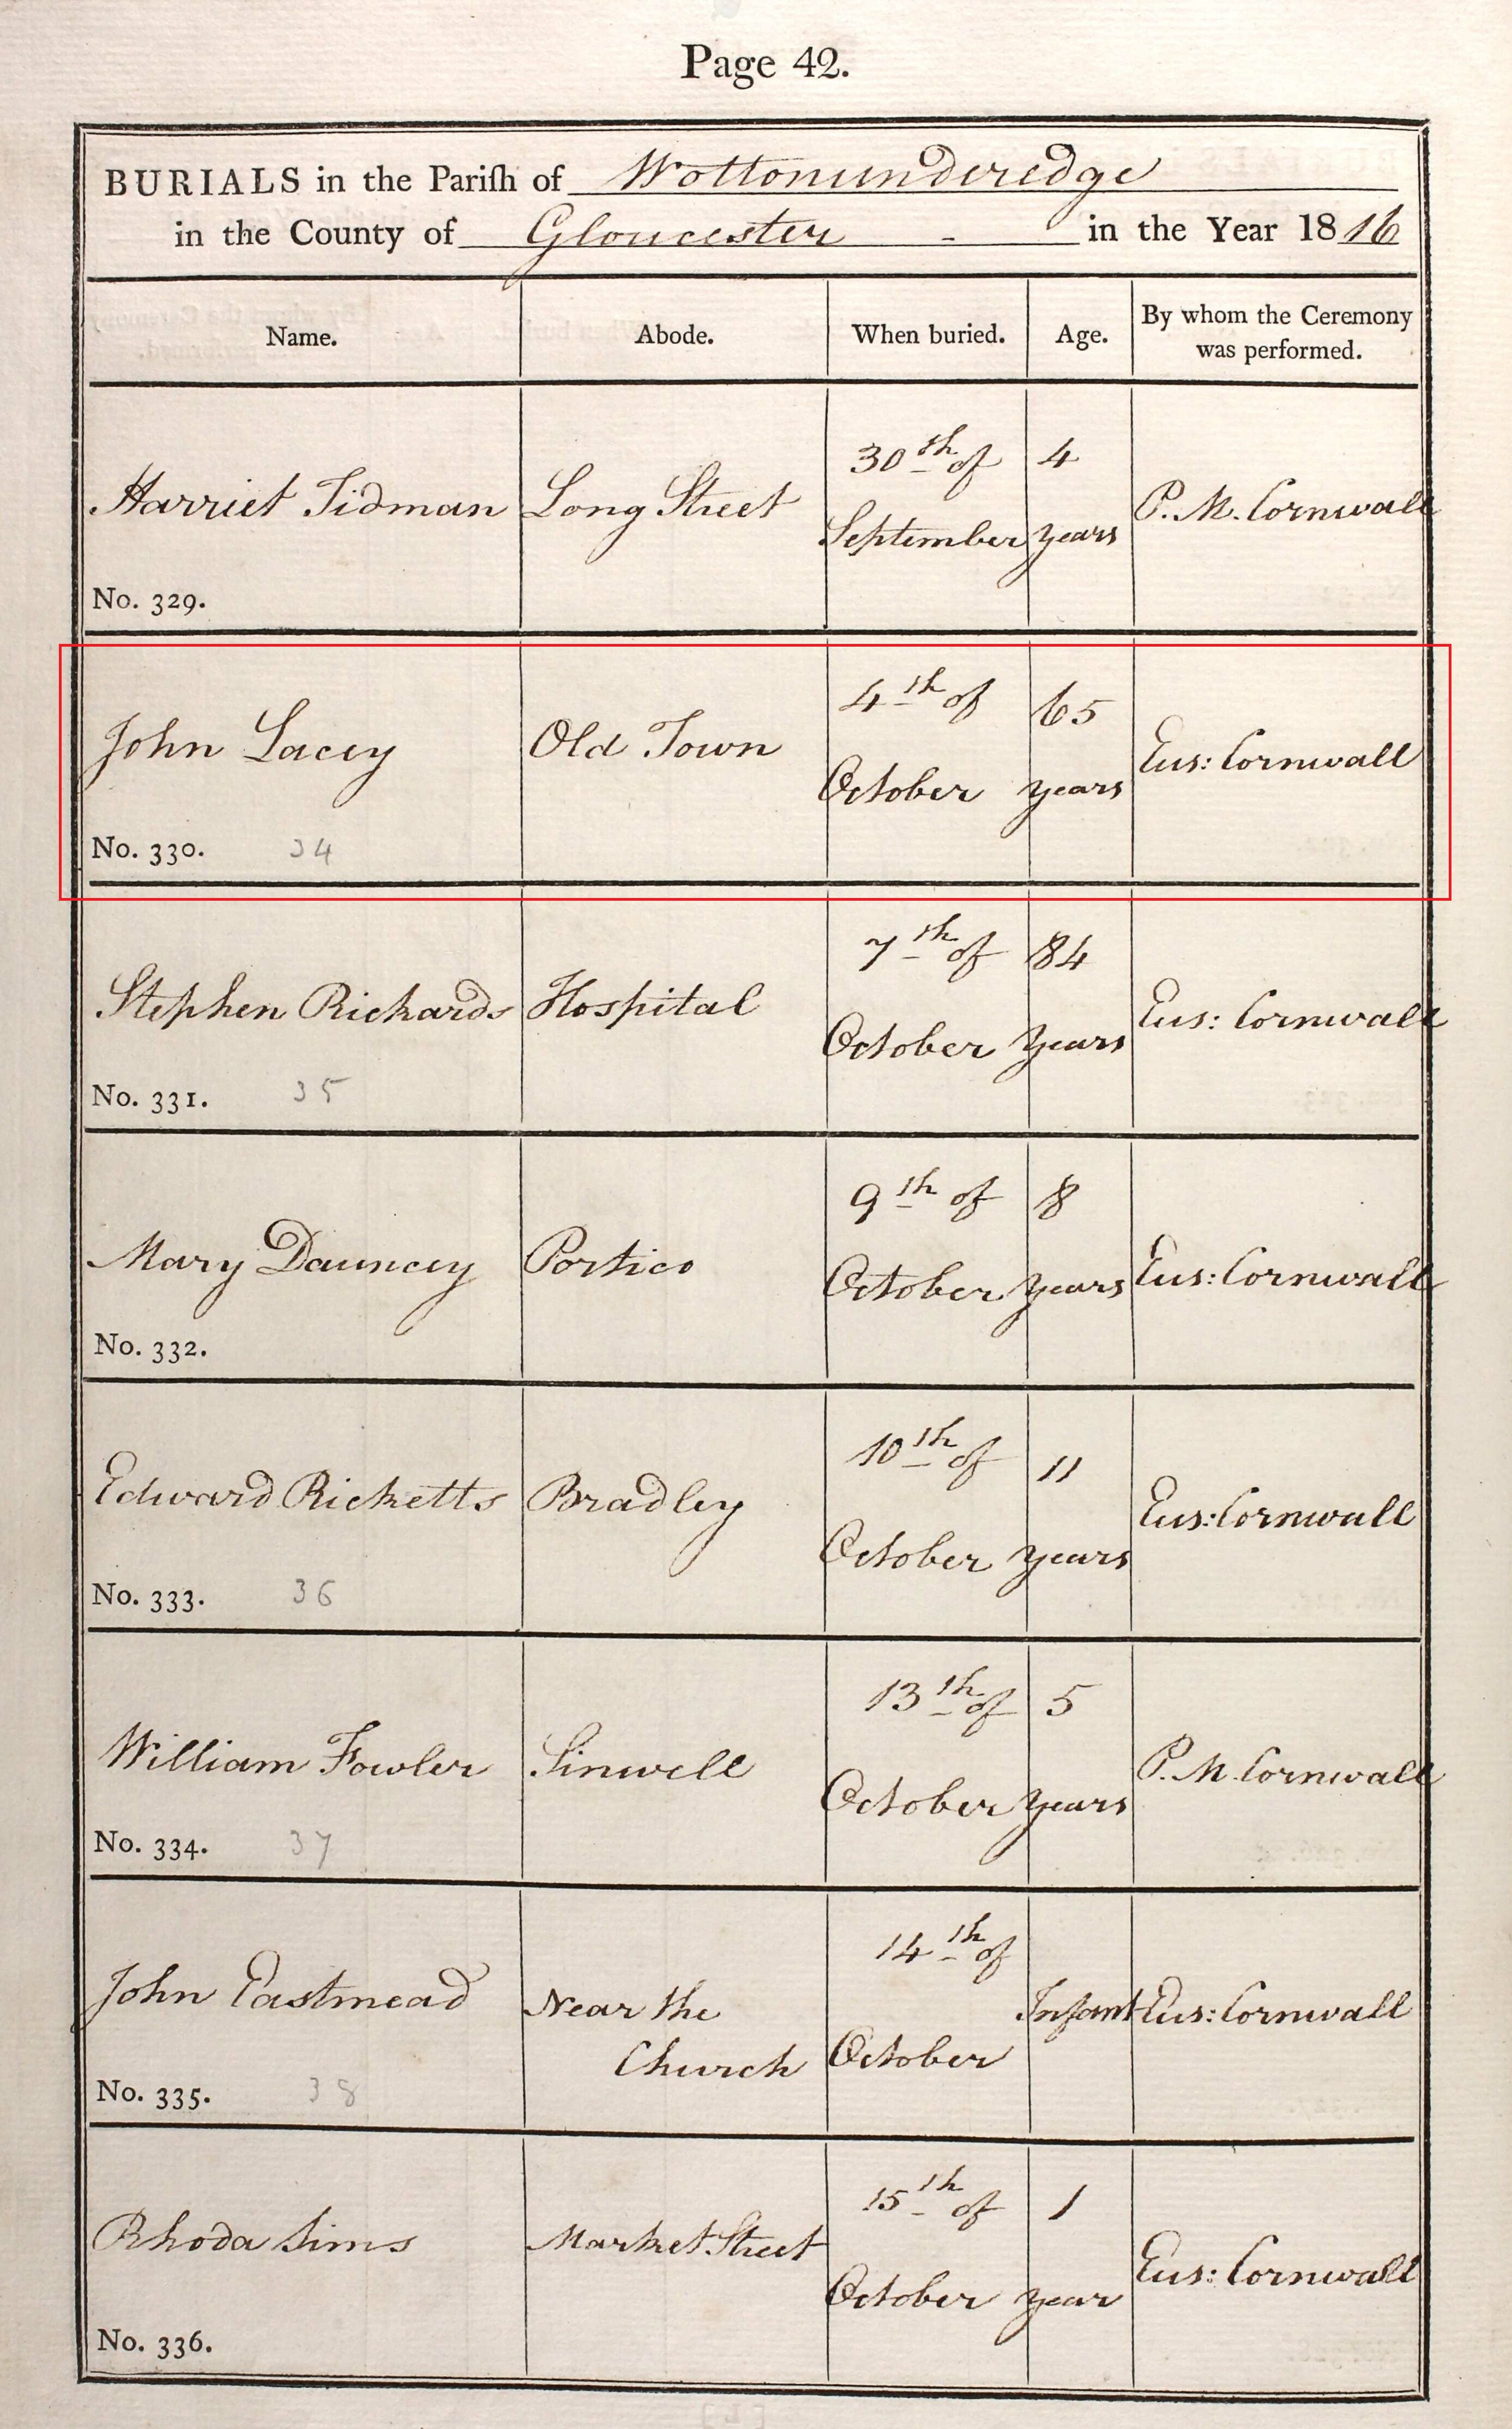 Page 42.
BURIALS in the Pariſh of Wottonunderedge
in the County of Gloucester - in the Year 1816
Name. Abode. When buried. Age. By whom the Ceremony was performed.
Harriet Tidman Long Street 30th of September 4 years P. M. Cornwall
No. 329.
John Lacey Old Town 4th of October 65 years Eus: Cornwall
No. 330. 34
Stephen Richards Hospital 7th of October 84 years Eus: Cornwall
No. 331. 35
Mary Dauncey Portico 9th of October 8 years Eus: Cornwall
No. 332.
Edward Ricketts Bradley 10th of October 11 years Eus: Cornwall
No. 333. 36
William Fowler Sinwell 13th of October 5 years P. M. Cornwall
No. 334. 37
John Eastmead Near the Church 14th of October Infant Eus: Cornwall
No. 335. 38
Rhoda Sims Market Street 15th of October 1 year Eus: Cornwall
No. 336.